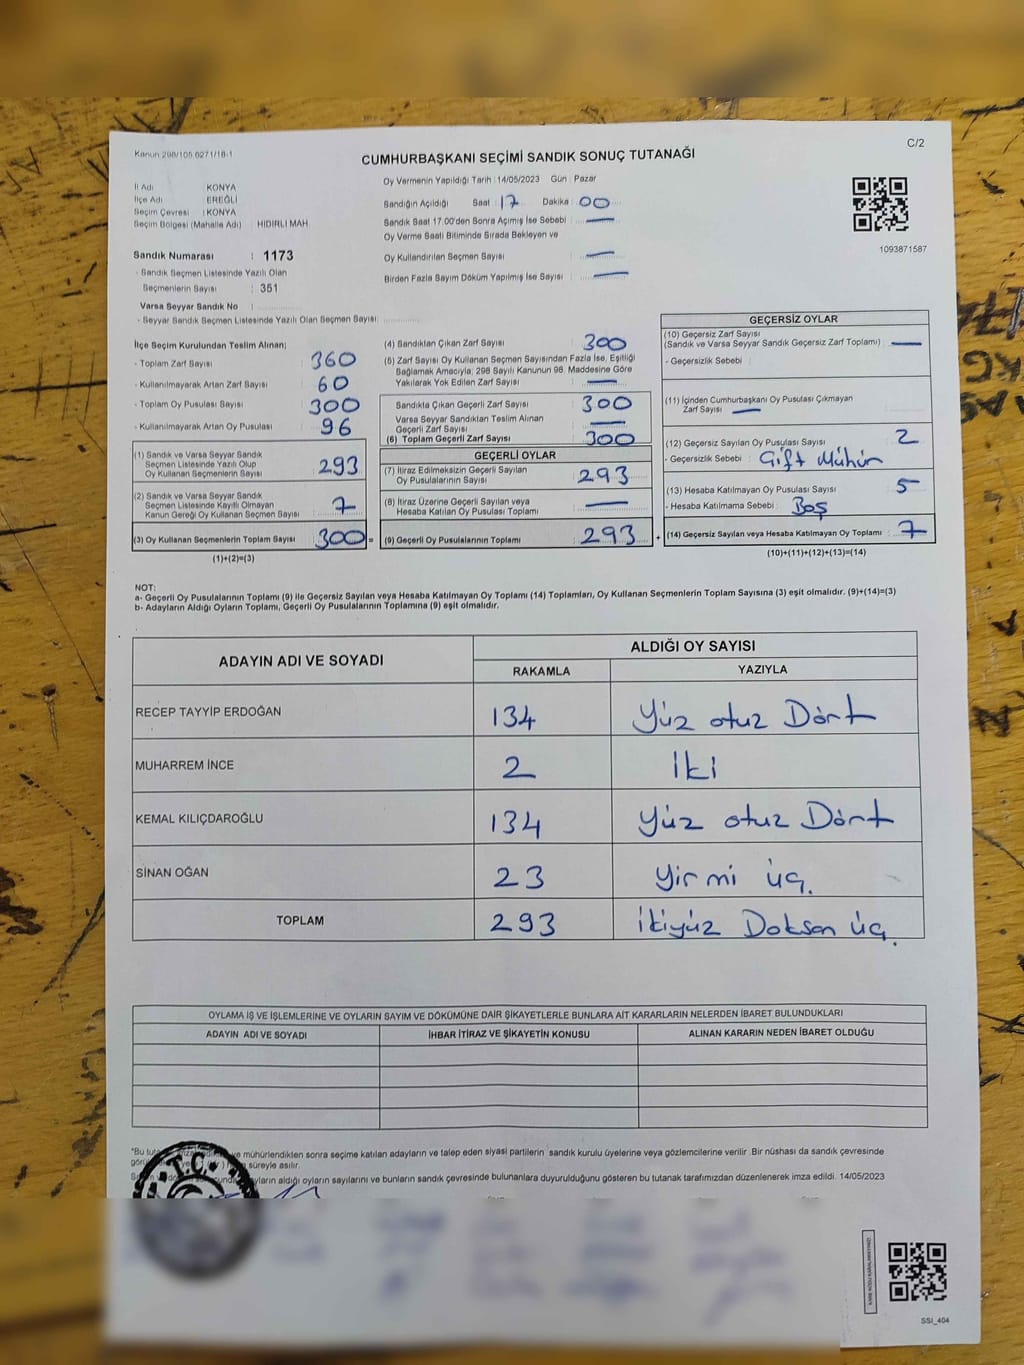 Kanun 298/105 6271/18-1
C/2
CUMHURBAŞKANI SEÇİMİ SANDIK SONUÇ TUTANAĞI
İl Adı : KONYA
İlçe Adı : EREĞLİ
Seçim Çevresi : KONYA
Seçim Bölgesi (Mahalle Adı) : HIDIRLI MAH
Sandık Numarası : 1173
- Sandık Seçmen Listesinde Yazılı Olan
Seçmenlerin Sayısı : 351
Varsa Seyyar Sandık No :
- Seyyar Sandık Seçmen Listesinde Yazılı Olan Seçmen Sayısı:
Oy Vermenin Yapıldığı Tarih : 14/05/2023 Gün : Pazar
Sandığın Açıldığı Saat : 17 Dakika : 00
Sandık Saat 17.00'den Sonra Açımış İse Sebebi : —
Oy Verme Saati Bitiminde Sırada Bekleyen ve
Oy Kullandırılan Seçmen Sayısı : —
Birden Fazla Sayım Döküm Yapılmış İse Sayısı : —
1093871587
İlçe Seçim Kurulundan Teslim Alınan;
- Toplam Zarf Sayısı 360
- Kullanılmayarak Artan Zarf Sayısı 60
- Toplam Oy Pusulası Sayısı 300
- Kullanılmayarak Artan Oy Pusulası 96
(1) Sandık ve Varsa Seyyar Sandık
Seçmen Listesinde Yazılı Olup
Oy Kullanan Seçmenlerin Sayısı 293
(2) Sandık ve Varsa Seyyar Sandık
Seçmen Listesinde Kayıtlı Olmayan
Kanun Gereği Oy Kullanan Seçmen Sayısı 7
(3) Oy Kullanan Seçmenlerin Toplam Sayısı 300 =
(1)+(2)=(3)
(4) Sandıktan Çıkan Zarf Sayısı 300
(5) Zarf Sayısı Oy Kullanan Seçmen Sayısından Fazla İse, Eşitliği
Bağlamak Amacıyla; 298 Sayılı Kanunun 98. Maddesine Göre
Yakılarak Yok Edilen Zarf Sayısı —
Sandıkta Çıkan Geçerli Zarf Sayısı 300
Varsa Seyyar Sandıktan Teslim Alınan
Geçerli Zarf Sayısı —
(6) Toplam Geçerli Zarf Sayısı 300
GEÇERLİ OYLAR
(7) İtiraz Edilmeksizin Geçerli Sayılan
Oy Pusulalarının Sayısı 293
(8) İtiraz Üzerine Geçerli Sayılan veya
Hesaba Katılan Oy Pusulası Toplamı —
(9) Geçerli Oy Pusulalarının Toplamı 293 +
GEÇERSİZ OYLAR
(10) Geçersiz Zarf Sayısı
(Sandık ve Varsa Seyyar Sandık Geçersiz Zarf Toplamı) —
- Geçersizlik Sebebi :
(11) İçinden Cumhurbaşkanı Oy Pusulası Çıkmayan
Zarf Sayısı —
(12) Geçersiz Sayılan Oy Pusulası Sayısı 2
- Geçersizlik Sebebi : Çift Mühür
(13) Hesaba Katılmayan Oy Pusulası Sayısı 5
- Hesaba Katılmama Sebebi : Boş
(14) Geçersiz Sayılan veya Hesaba Katılmayan Oy Toplamı 7
(10)+(11)+(12)+(13)=(14)
NOT:
a- Geçerli Oy Pusulalarının Toplamı (9) ile Geçersiz Sayılan veya Hesaba Katılmayan Oy Toplamı (14) Toplamları, Oy Kullanan Seçmenlerin Toplam Sayısına (3) eşit olmalıdır. (9)+(14)=(3)
b- Adayların Aldığı Oyların Toplamı, Geçerli Oy Pusulalarının Toplamına (9) eşit olmalıdır.
ADAYIN ADI VE SOYADI ALDIĞI OY SAYISI
RAKAMLA YAZIYLA
RECEP TAYYİP ERDOĞAN 134 Yüz otuz Dört
MUHARREM İNCE 2 İki
KEMAL KILIÇDAROĞLU 134 Yüz otuz Dört
SİNAN OĞAN 23 Yirmi üç.
TOPLAM 293 İkiyüz Doksan üç.
OYLAMA İŞ VE İŞLEMLERİNE VE OYLARIN SAYIM VE DÖKÜMÜNE DAİR ŞİKAYETLERLE BUNLARA AİT KARARLARIN NELERDEN İBARET BULUNDUKLARI
ADAYIN ADI VE SOYADI İHBAR İTİRAZ VE ŞİKAYETİN KONUSU ALINAN KARARIN NEDEN İBARET OLDUĞU
*Bu ve mühürlendikten sonra seçime katılan adayların ve talep eden siyasi partilerin sandık kurulu üyelerine veya gözlemcilerine verilir. Bir nüshası da sandık çevresinde
süreyle asılır.
aldığı oyların sayılarını ve bunların sandık çevresinde bulunanlara duyurulduğunu gösteren bu tutanak tarafımızdan düzenlenerek imza edildi. 14/05/2023
T.C.
SSI_404